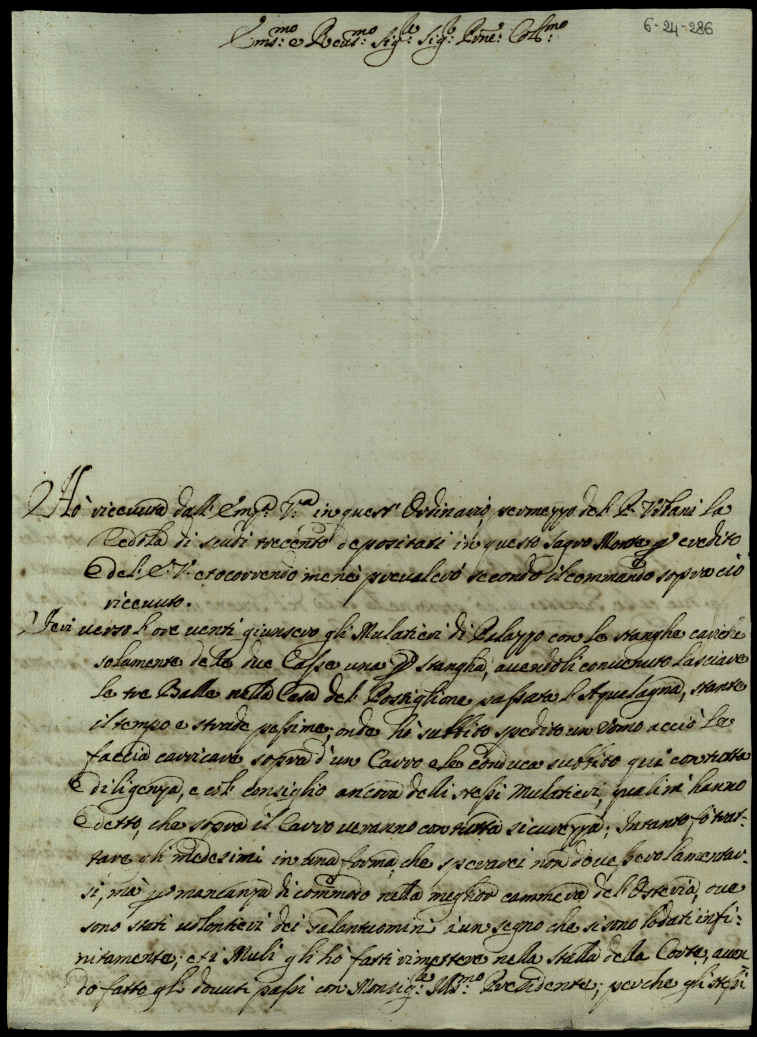 6-24-286
Em̃s:mo e Rẽus:mo Sig:re Sig:re Prñe: Col:mo
Hò riceuuta dall'Emz:a V:ra in quest'Ordinario, per mezzo del P. Vitani la
Cedola di scudi trecento depositati in questo Sagro Monte p credito
del: E: V: et occorrendo menè preualerò secondo il commando sopra ciò
riceuuto.
Ieri uerso l'ore uenti giunsero gli Mulatieri di Palazzo con le stanghe cariche
solamente delle due Casse una p stangha, auendoli conuenuto lasciare
le tre Balle nella Casa del Postiglione passata l'Aqualagna, stante
il tempo e strade pessime; onde hò subbito spedito un Uomo acciò le
faccia carricare sopra d'un Carro e le conduca subbito quì con tutta
diligenza, e col consiglio ancora delli stessi Mulatieri, quali mi hanno
detto, che sopra il Carro ueranno con tutta sicurezza; Intanto fò trat-
tare gli medesimi in una forma, che sperarei non douessero lamentar-
si, mà p mancanza di commodo nella meglior cammera dell'Osteria, oue
sono stati uolontieri dei Galantuomini à un segno che si sono lodati infi-
nitamente; et i Muli gli hò fatti rimettere nella Stalla della Corte, auen-
do fatto gli douuti passi con Monsig:re Ill:mo Presidente; perche gli stessi